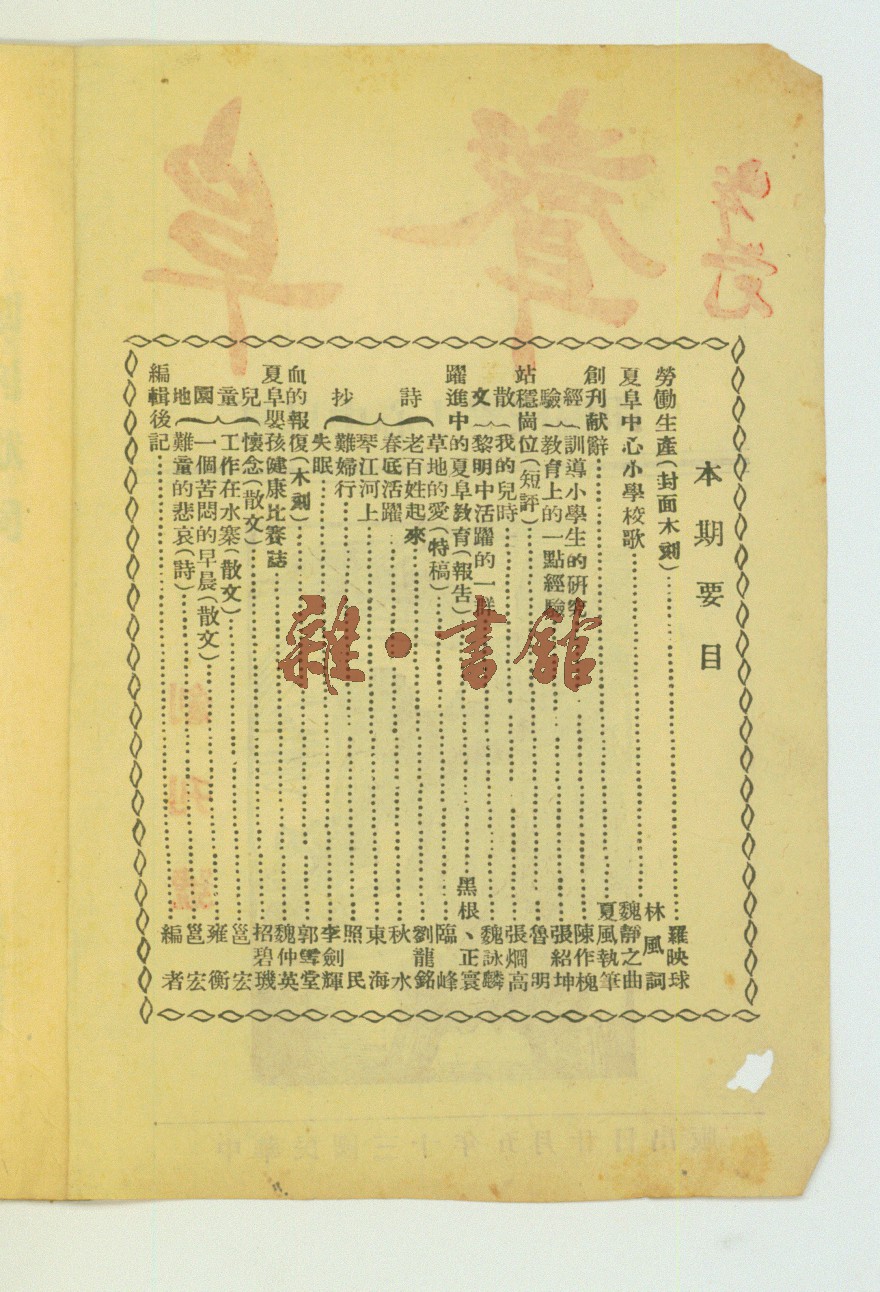 本期要目
勞働生產(封面木刻)……羅映球
夏阜中心小學校歌……林風詞
魏靜之曲
創刊献辭……夏風執筆
經驗
訓導小學生的研究……陳作槐
教育上的一點經驗……張紹坤
站穩崗位(短評)……魯明
散文
我的兒時……張烱高
黎明中活躍的一群……魏詠麟
躍進中的夏阜教育(報告)……黑根、正寰
草地的愛(特稿)……臨峰
詩抄
老百姓起來……劉龍銘
春底活躍……秋水
琴江河上……東海
難婦行……照民
失眠……李劍輝
血的報復(木刻)……郭雪堂
夏阜嬰孩健康比賽誌……魏仲英
兒童園地
懷念(散文)……招碧璣
工作在水寨(散文)……邕宏
一個苦悶的早晨(散文)……雍衡
難童的悲哀(詩)……邕宏
編輯後記……編者
雜·書館